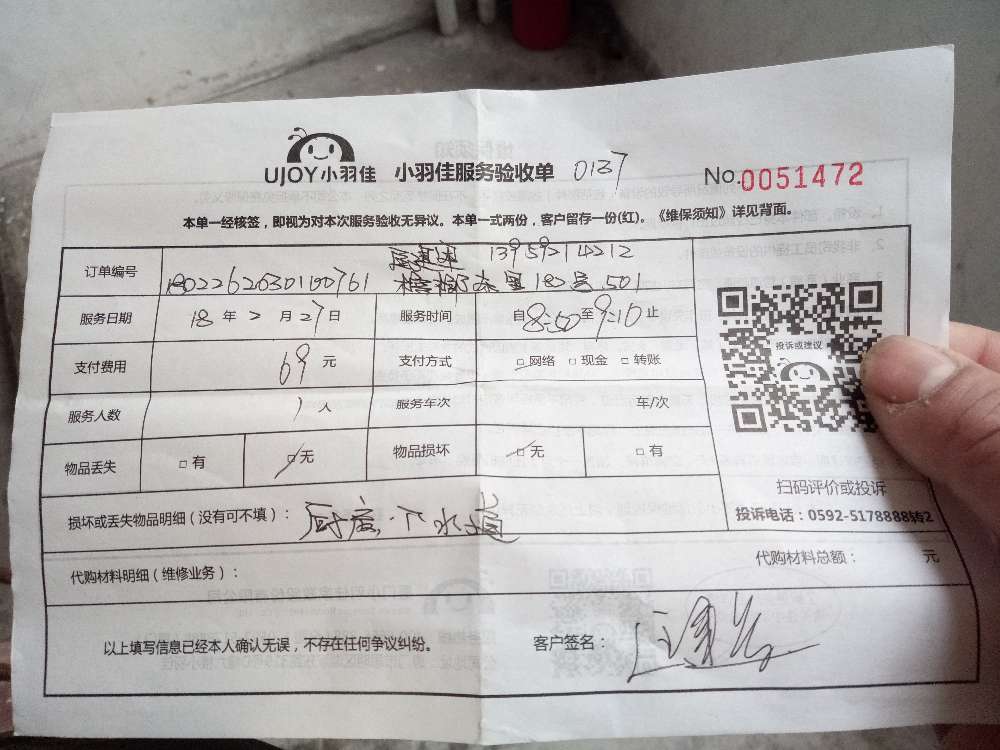 UJOY小羽佳 小羽佳服务验收单 0137 No.0051472
本单一经核签，即视为对本次服务验收无异议。本单一式两份，客户留存一份(红)。《维保须知》详见背面。
13959214212
订单编号 182号501
服务日期 18年2月27日 服务时间 自8:50至9:10止
投诉或建议
支付费用 69元 支付方式 □网络 □现金 □转账
服务人数 1人 服务车次 车/次
物品丢失 □有 □无 物品损坏 □无 □有
扫码评价或投诉
损坏或丢失物品明细（没有可不填）： 下水道
投诉电话：0592-5178888转2
代购材料明细（维修业务）： 代购材料总额： 元
以上填写信息已经本人确认无误，不存在任何争议纠纷。 客户签名：